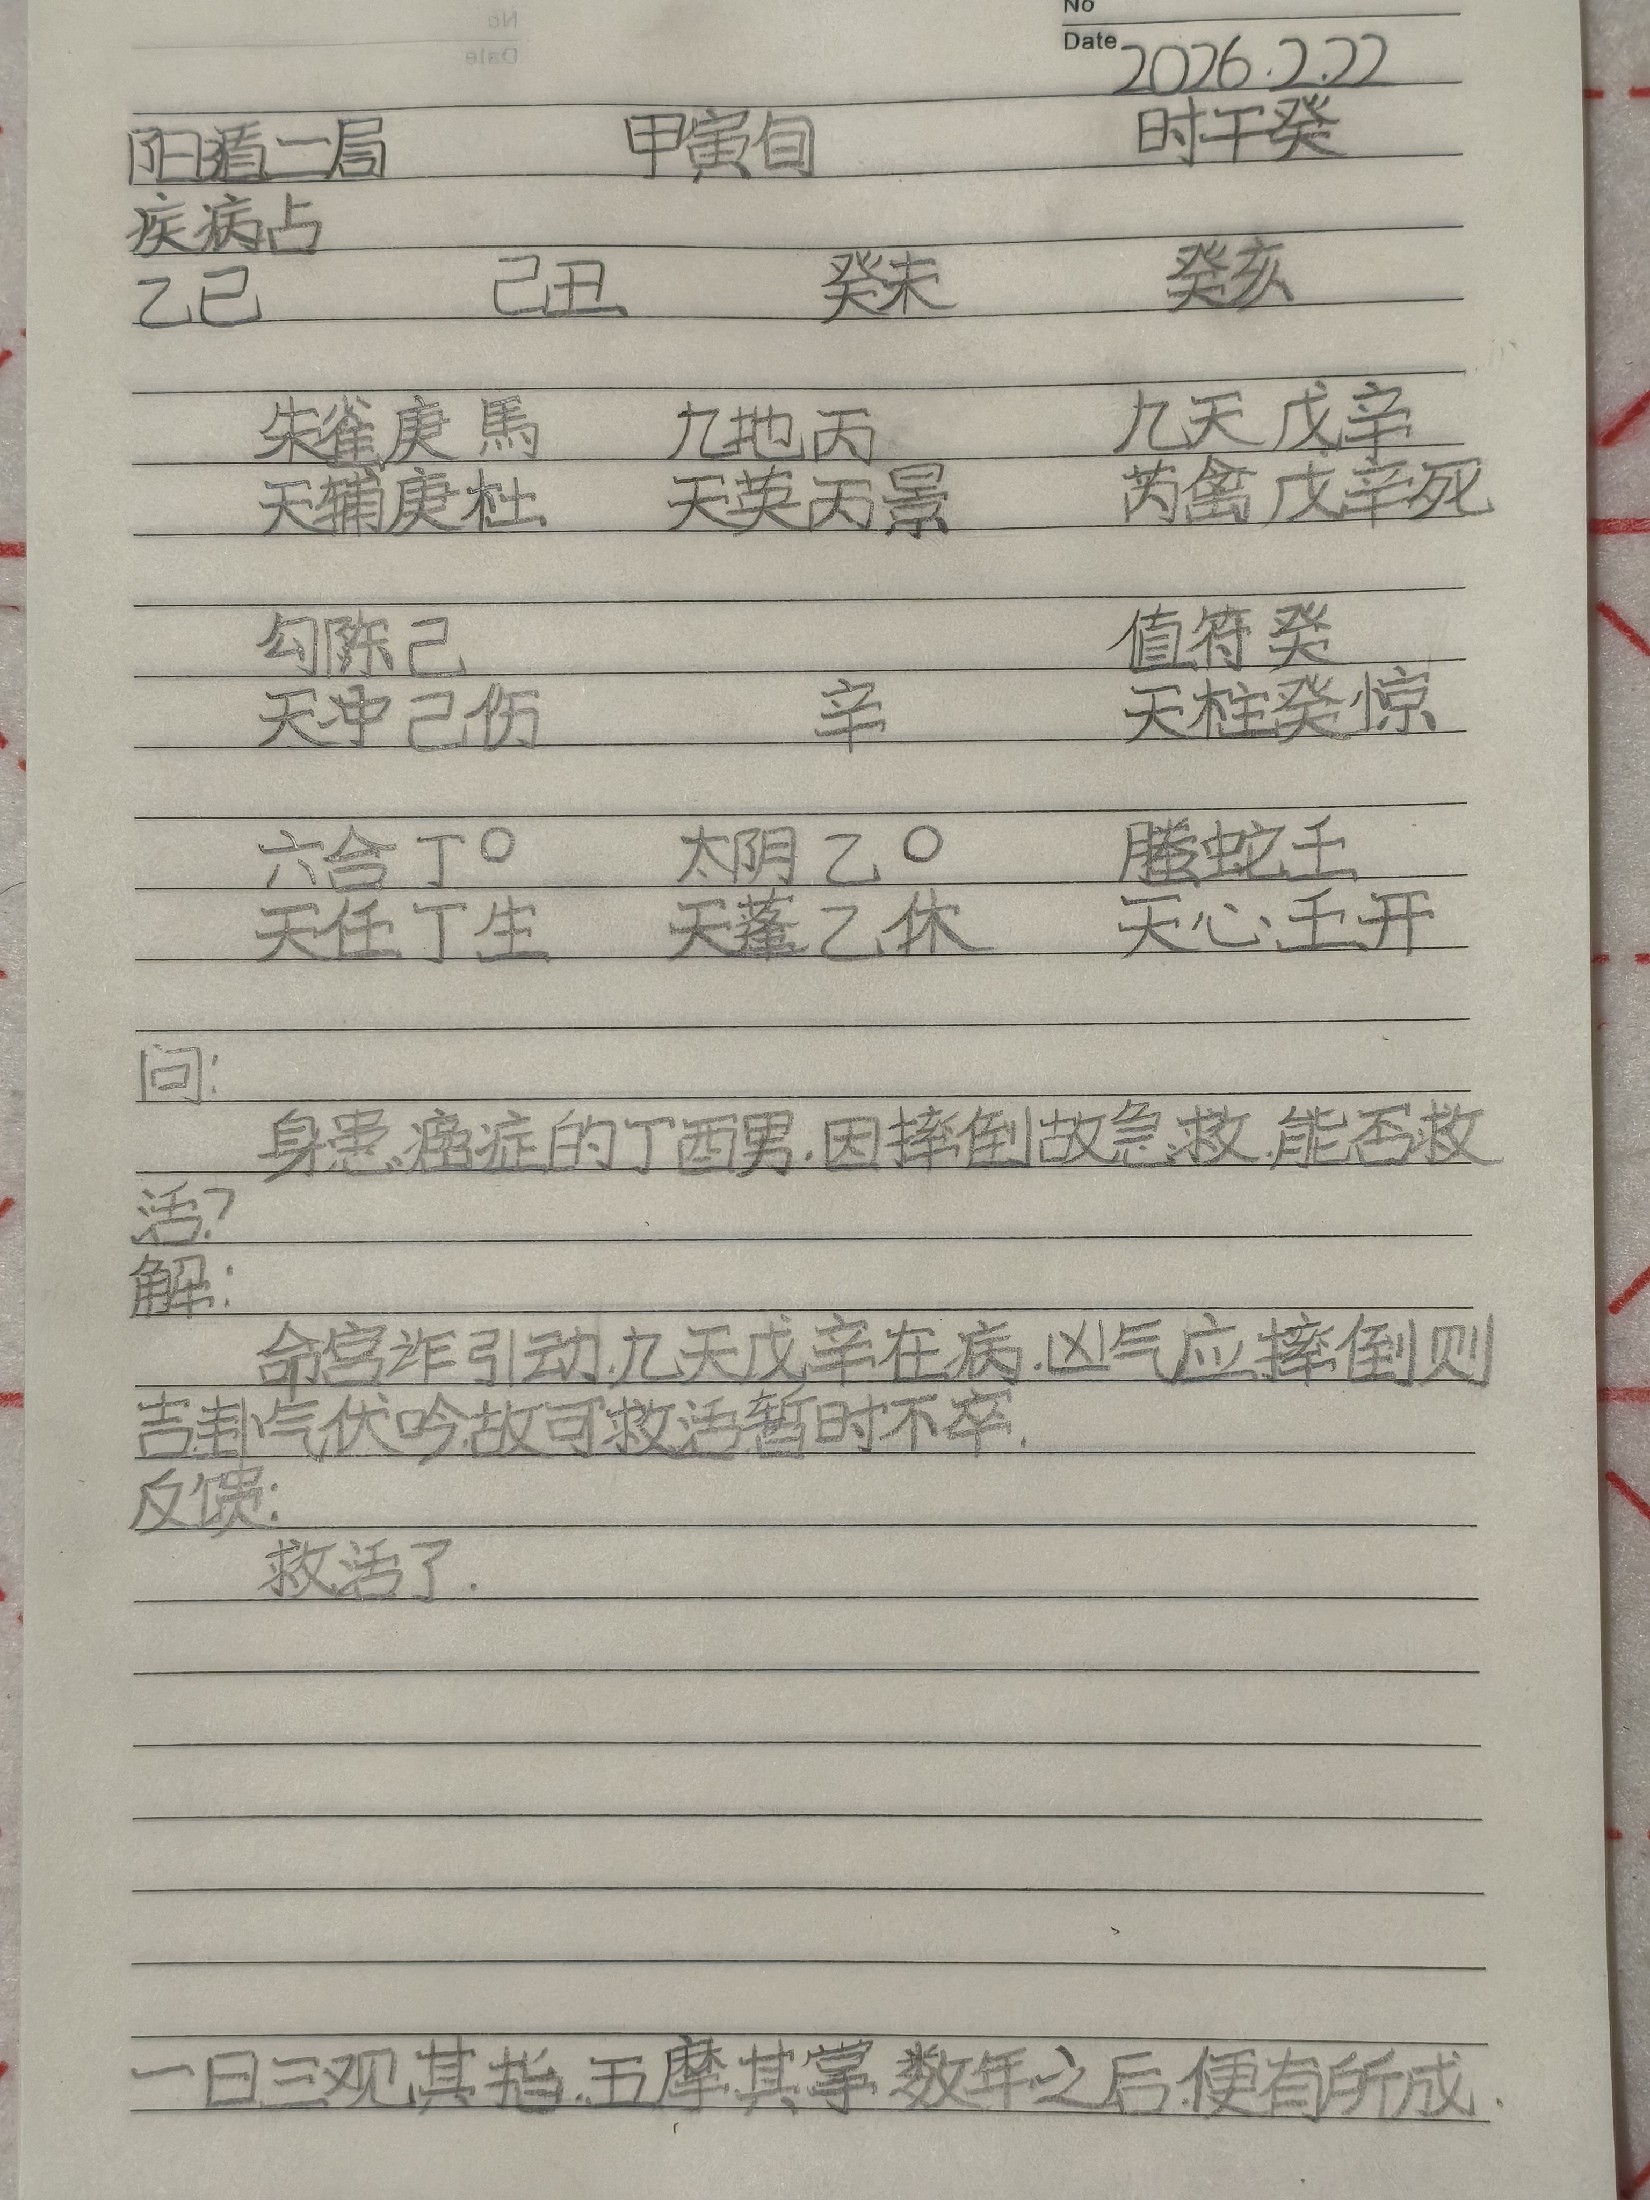 No
Date 2026.2.22
阳遁二局 甲寅旬 时干癸
疾病占
乙巳 己丑 癸未 癸亥
朱雀庚馬 九地丙 九天戊辛
天辅庚杜 天英丙景 芮禽戊辛死
勾陈己 值符癸
天冲己伤 辛 天柱癸惊
六合丁○ 太阴乙○ 螣蛇壬
天任丁生 天蓬乙休 天心壬开
问:
身患癌症的丁酉男.因摔倒故急救.能否救
活?
解:
命宫诈引动.九天戊辛在病.凶气应摔倒则
吉卦气伏吟故可救活暂时不卒.
反馈:
救活了.
一日三观其指.五摩其掌数年之后.便有所成.